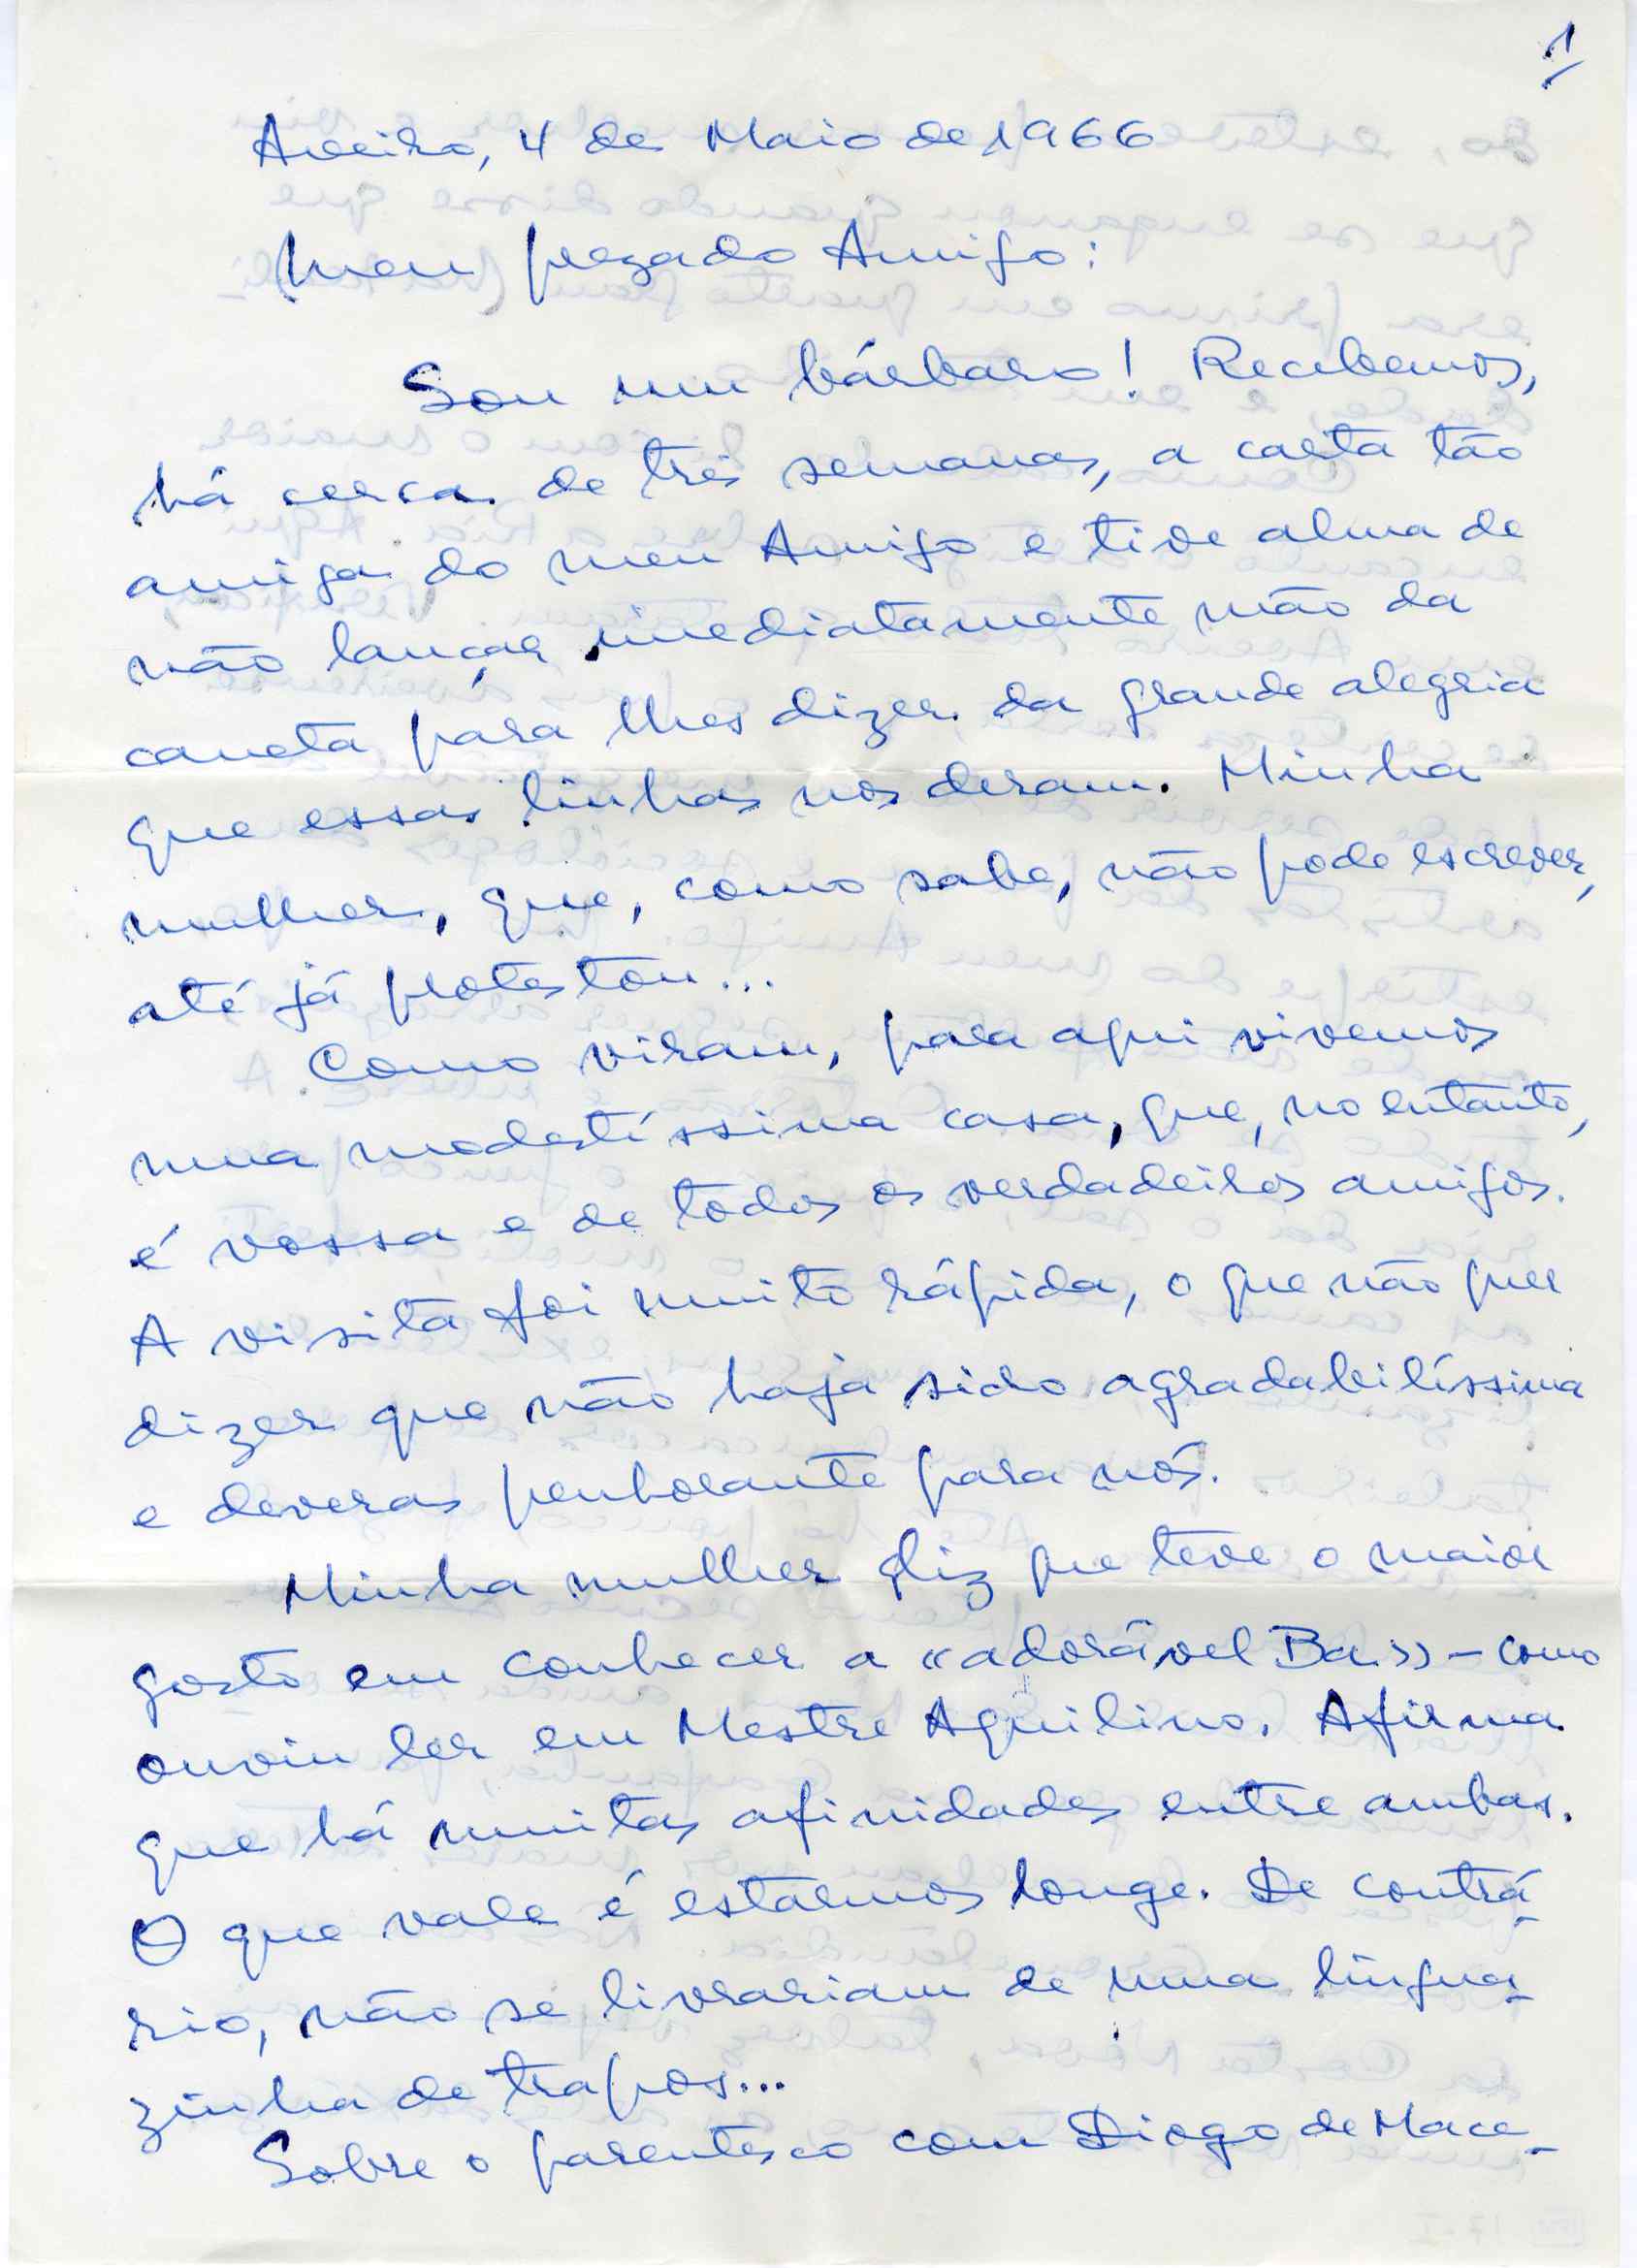 1
Aveiro, 4 de Maio de 1966
Meu prezado Amigo:
Sou um bárbaro! Recebemos,
há cerca de três semanas, a carta tão
amiga do meu Amigo e tive alma de
não lançar imediatamente mão da
caneta para lhes dizer da grande alegria
que essas linhas nos deram. Minha
mulher, que, como sabe, não pode escrever,
até já protestou...
Como viram, para aqui vivemos
numa modestíssima casa, que, no entanto,
é vossa e de todos os verdadeiros amigos.
A visita foi muito rápida, o que não quer
dizer que não haja sido agradabilíssima
e deveras penhorante para nós.
Minha mulher diz que teve o maior
gosto em conhecer a «adorável Ba» – como
ouviu ler em Mestre Aquilino. Afirma
que há muitas afinidades entre ambas.
O que vale é estarmos longe. De contrá-
rio, não se livrariam de uma língua-
zinha de trapos...
Sobre o parentesco com Diogo de Mace-